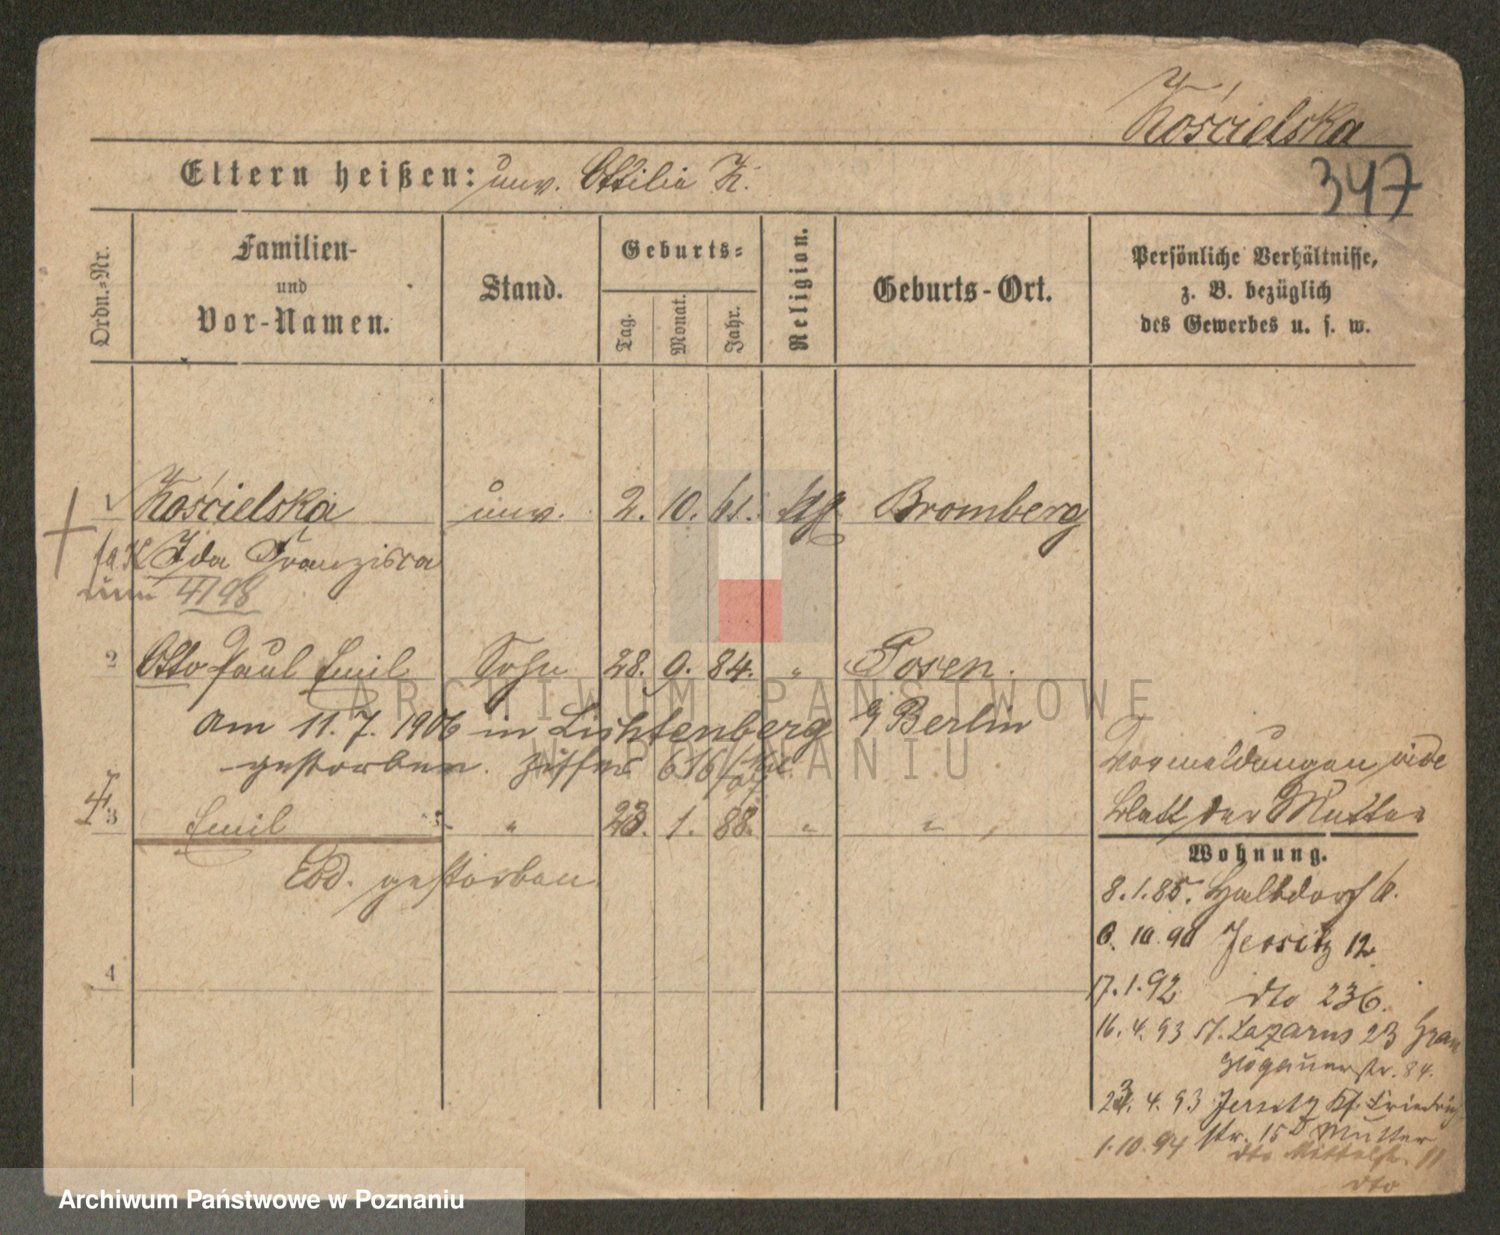 Kościelska
Eltern heißen: unv. Ottilie K.
347
Ordn.-Nr.
Familien-
und
Vor-Namen.
Stand.
Geburts-
Tag.
Monat.
Jahr.
Religion.
Geburts-Ort.
Persönliche Verhältnisse,
z. B. bezüglich
des Gewerbes u. s. w.
1 Kościelska unv. 2. 10. 61. Bromberg
Ida Franzisca
4/98
2 Otto Paul Emil Sohn 28. 9. 84. " Posen.
Am 11. 7. 1906 in Lichtenberg b/ Berlin
gestorben.
Vormeldungen vide
Blatt der Mutter
3 Emil " 23. 1. 88. " "
Ebd. gestorben.
4
Wohnung.
8. 1. 85. Halbdorf 6.
6. 10. 90 Jersitz 12.
17. 1. 92 dto 236.
16. 4. 93 St. Lazarus 23
Glogauerstr. 84.
4. 93 Jersitz
str. 15 Mutter
1. 10. 94 dto
dto
ARCHIWUM PAŃSTWOWE
W POZNANIU
Archiwum Państwowe w Poznaniu